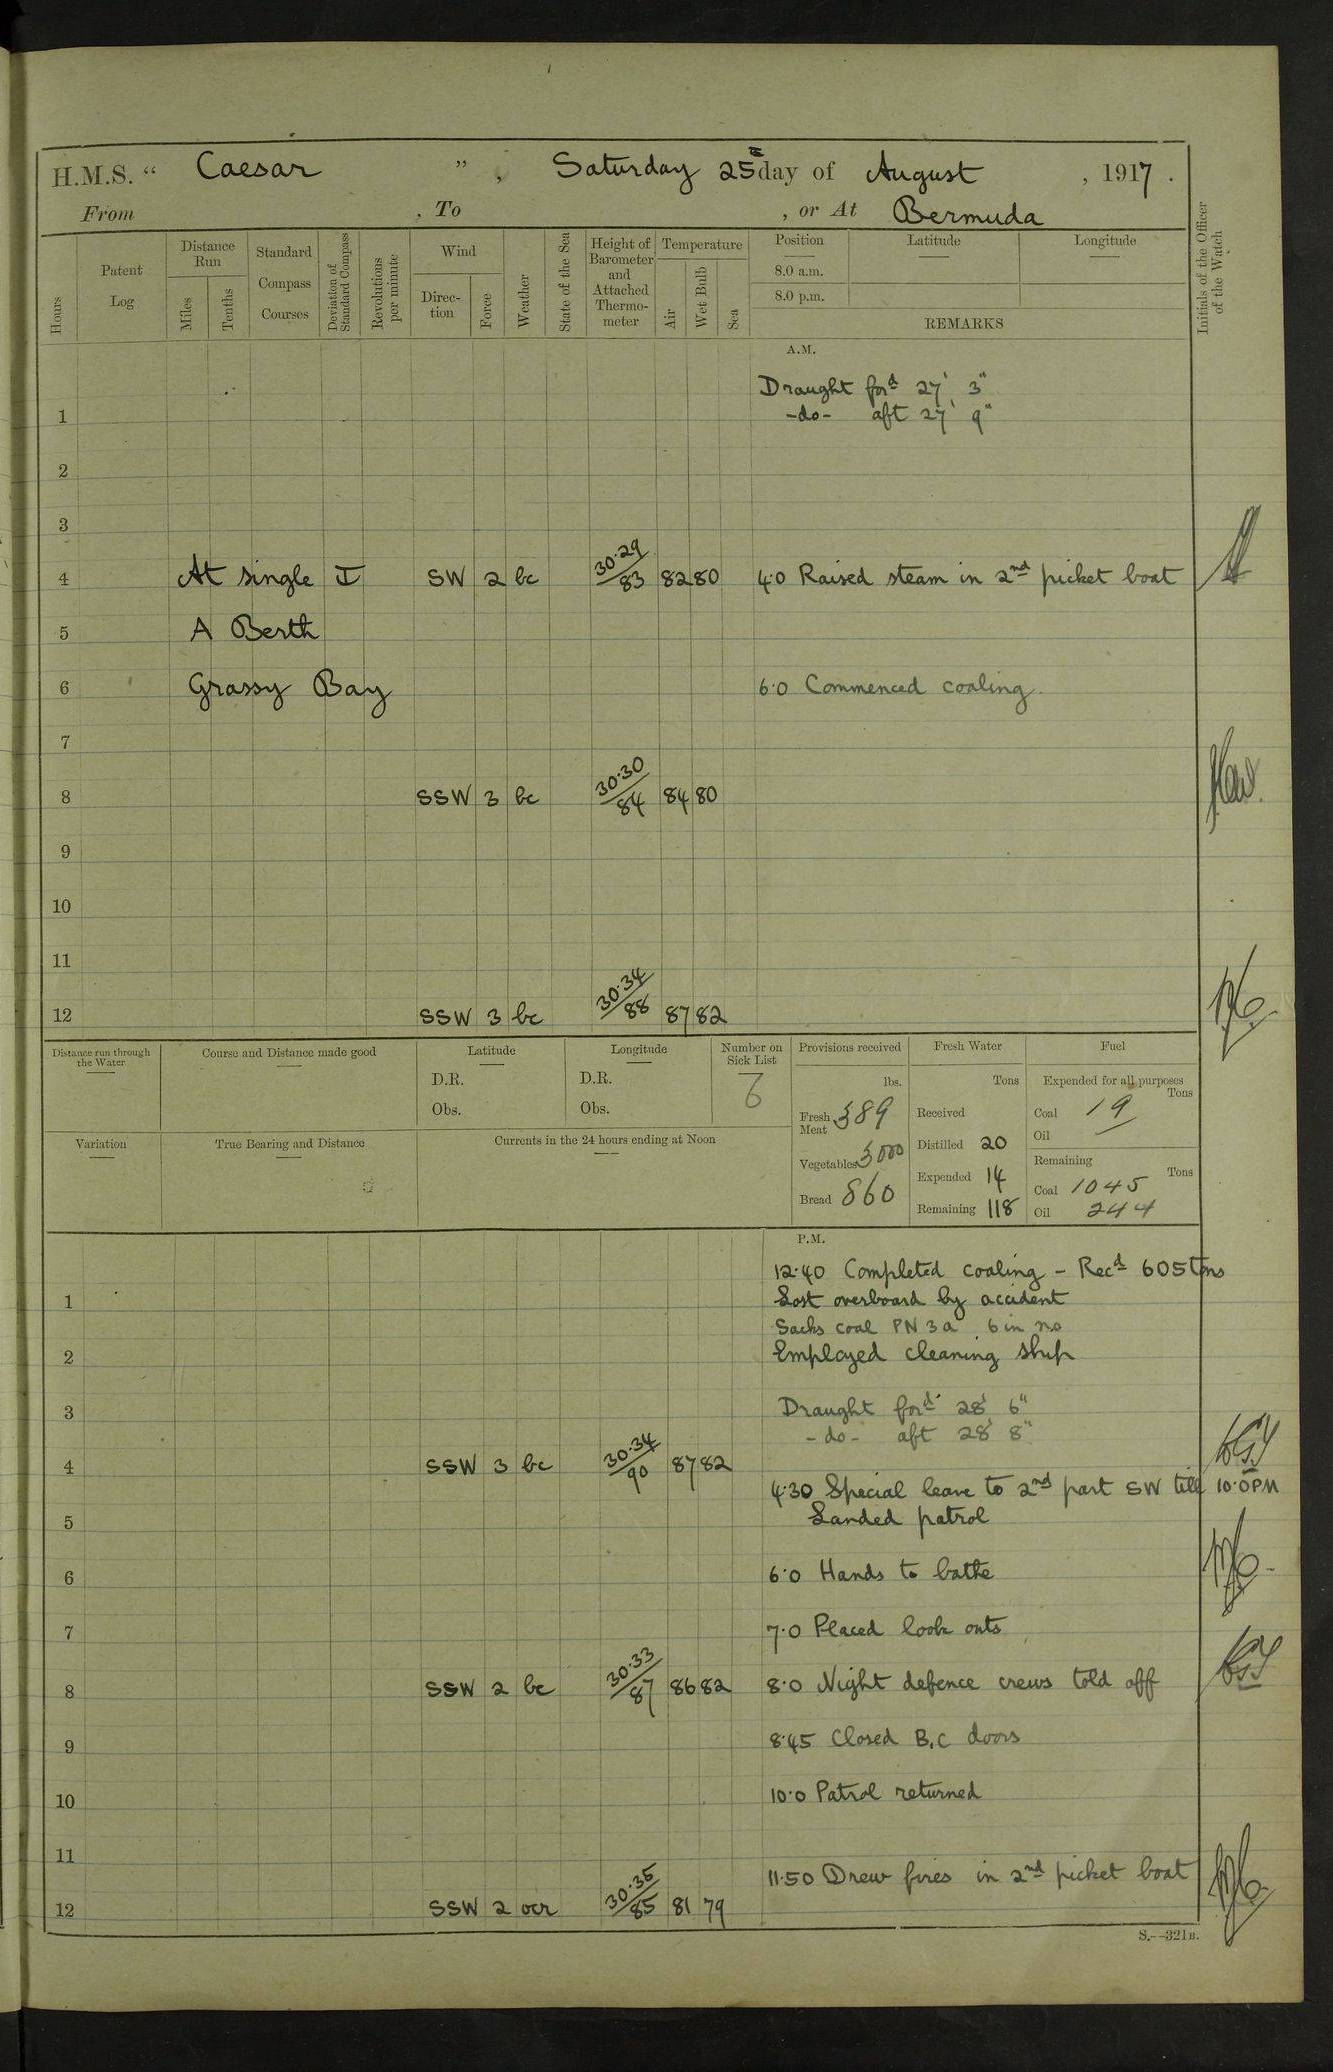 H.M.S. “ Caesar ” , Saturday 25th day of August , 1917 .
From , To , or At Bermuda
Hours Patent Log Distance Run Miles Tenths Standard Compass Courses Deviation of Standard Compass Revolutions per minute Wind Direction Force Weather State of the Sea Height of Barometer and Attached Thermometer Temperature Air Wet Bulb Sea Position Latitude Longitude Initials of the Officer of the Watch
8.0 a.m.
8.0 p.m.
REMARKS
A.M.
Draught ford 27' 3"
1 -do- aft 27' 9"
2
3
4 At single I SW 2 bc 30.29/83 82 80 4.0 Raised steam in 2nd picket boat
5 A Berth
6 Grassy Bay 6.0 Commenced coaling
7
8 SSW 3 bc 30.30/84 84 80
9
10
11
12 SSW 3 bc 30.34/88 87 82
Distance run through the Water Course and Distance made good Latitude Longitude Number on Sick List Provisions received Fresh Water Fuel
D.R. D.R. 6 lbs. Tons Expended for all purposes Tons
Obs. Obs. Fresh Meat 389 Received Coal 19
Oil —
Variation True Bearing and Distance Currents in the 24 hours ending at Noon Vegetables 3000 Distilled 20 Remaining Tons
Bread 860 Expended 14 Coal 1045
Remaining 118 Oil 244
P.M.
12.40 Completed coaling - Recd 605 tons
1 Lost overboard by accident
Sacks coal PN 3a 6 in no
2 Employed cleaning ship
3 Draught ford 28' 6"
-do- aft 28' 8"
4 SSW 3 bc 30.34/90 87 82
4.30 Special leave to 2nd part SW till 10.0 PM
5 Landed patrol
6 6.0 Hands to bathe
7 7.0 Placed look outs
8 SSW 2 bc 30.33/87 86 82 8.0 Night defence crews told off
9 8.45 Closed B.C doors
10 10.0 Patrol returned
11 11.50 Drew fires in 2nd picket boat
12 SSW 2 ocr 30.35/85 81 79
S.—321B.